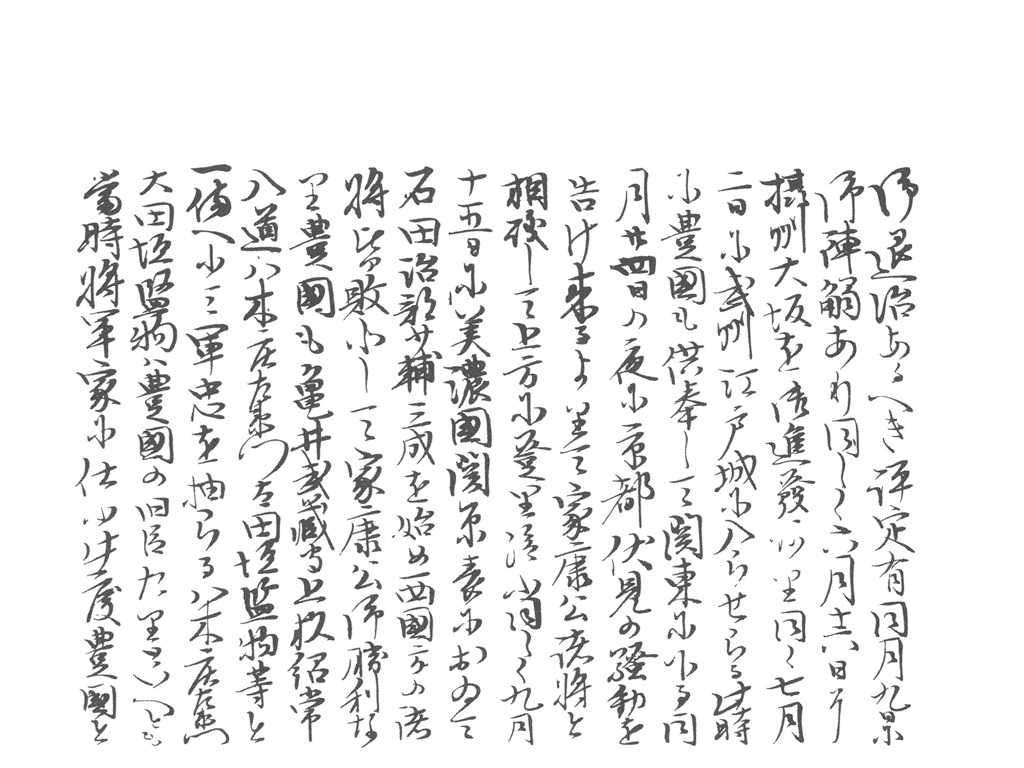 御退治あるへき評定有同月九景
御陣觸あり同しく六月十六日ニ
攝州大坂を御進發ありて同く七月
二日に武州江戸城に入らせらる此時
に豊國も供奉して関東に下る同
月廿四日の夜に京都伏見の騒動を
告け来るよりて家康公諸将と
相殘して上方に登り給ふ同しく九月
十五日に美濃國関原表におゐて
石田治部少輔三成を始め西國方の諸
将皆敗北して家康公御勝利な
り豊國も亀井武蔵守上杦紹常
八道八木庄左衛門大田垣監物等と
一備へにて軍忠を抽らる八木庄左衛門
大田垣監物ハ豊國の旧臣たりといへとも
當時将軍家に仕ゆ此度豊國と